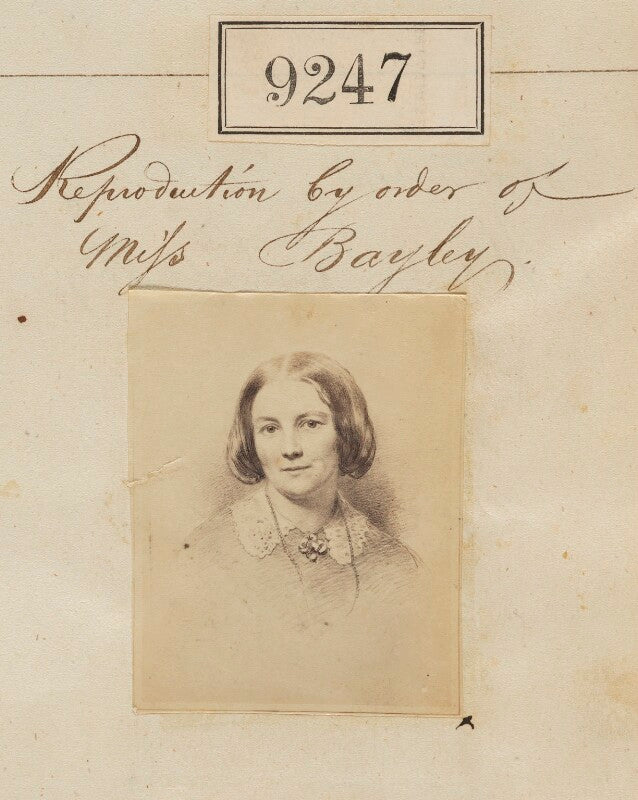 9247
Reproduction by order of
Miss Bayley.